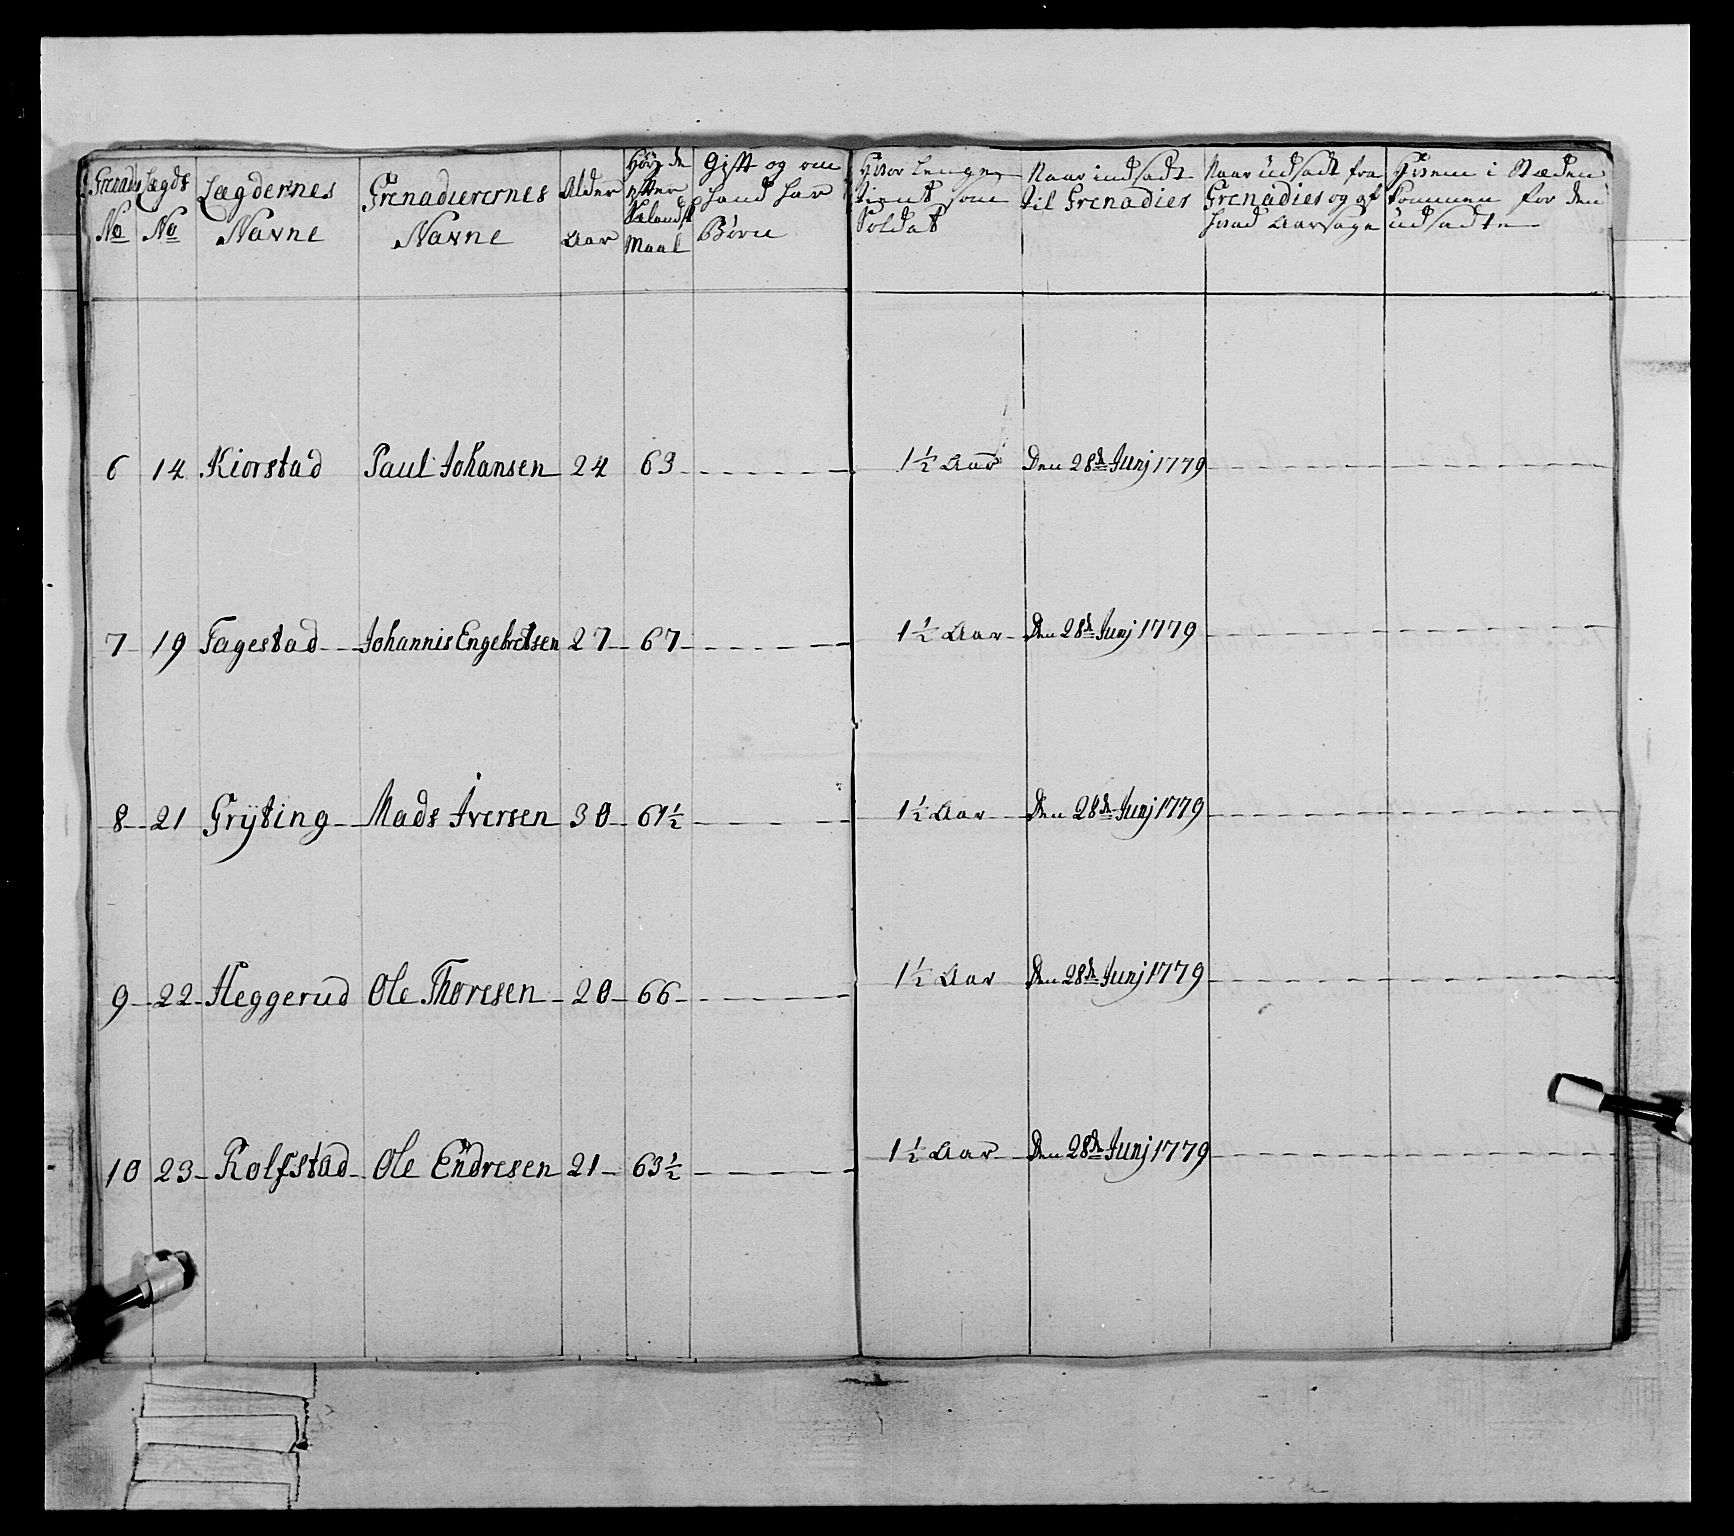 Grenads No
Lægds No
Lægdernes Navne
Grenadierernes Navne
Alder Aar
Høyde efter Sælandsk Maal
Gift og om hand har Børn
Hvor lenge tient som Soldat
Naar indsadt til Grenadier
Naar udsadt fra Grenadier og af hvad Aarsage
Hvem i Stæden kommen for den udsadte
6 14 Kiorstad Paul Johansen 24 63 1½ Aar Den 28de Junj 1779
7 19 Fagestad Johannis Engebretsen 27 67 1½ Aar Den 28de Junj 1779
8 21 Grÿting Mads Iversen 30 61½ 1½ Aar Den 28de Junj 1779
9 22 Heggerud Ole Thoresen 20 66 1½ Aar Den 28de Junj 1779
10 23 Rolfstad Ole Endresen 21 63½ 1½ Aar Den 28de Junj 1779